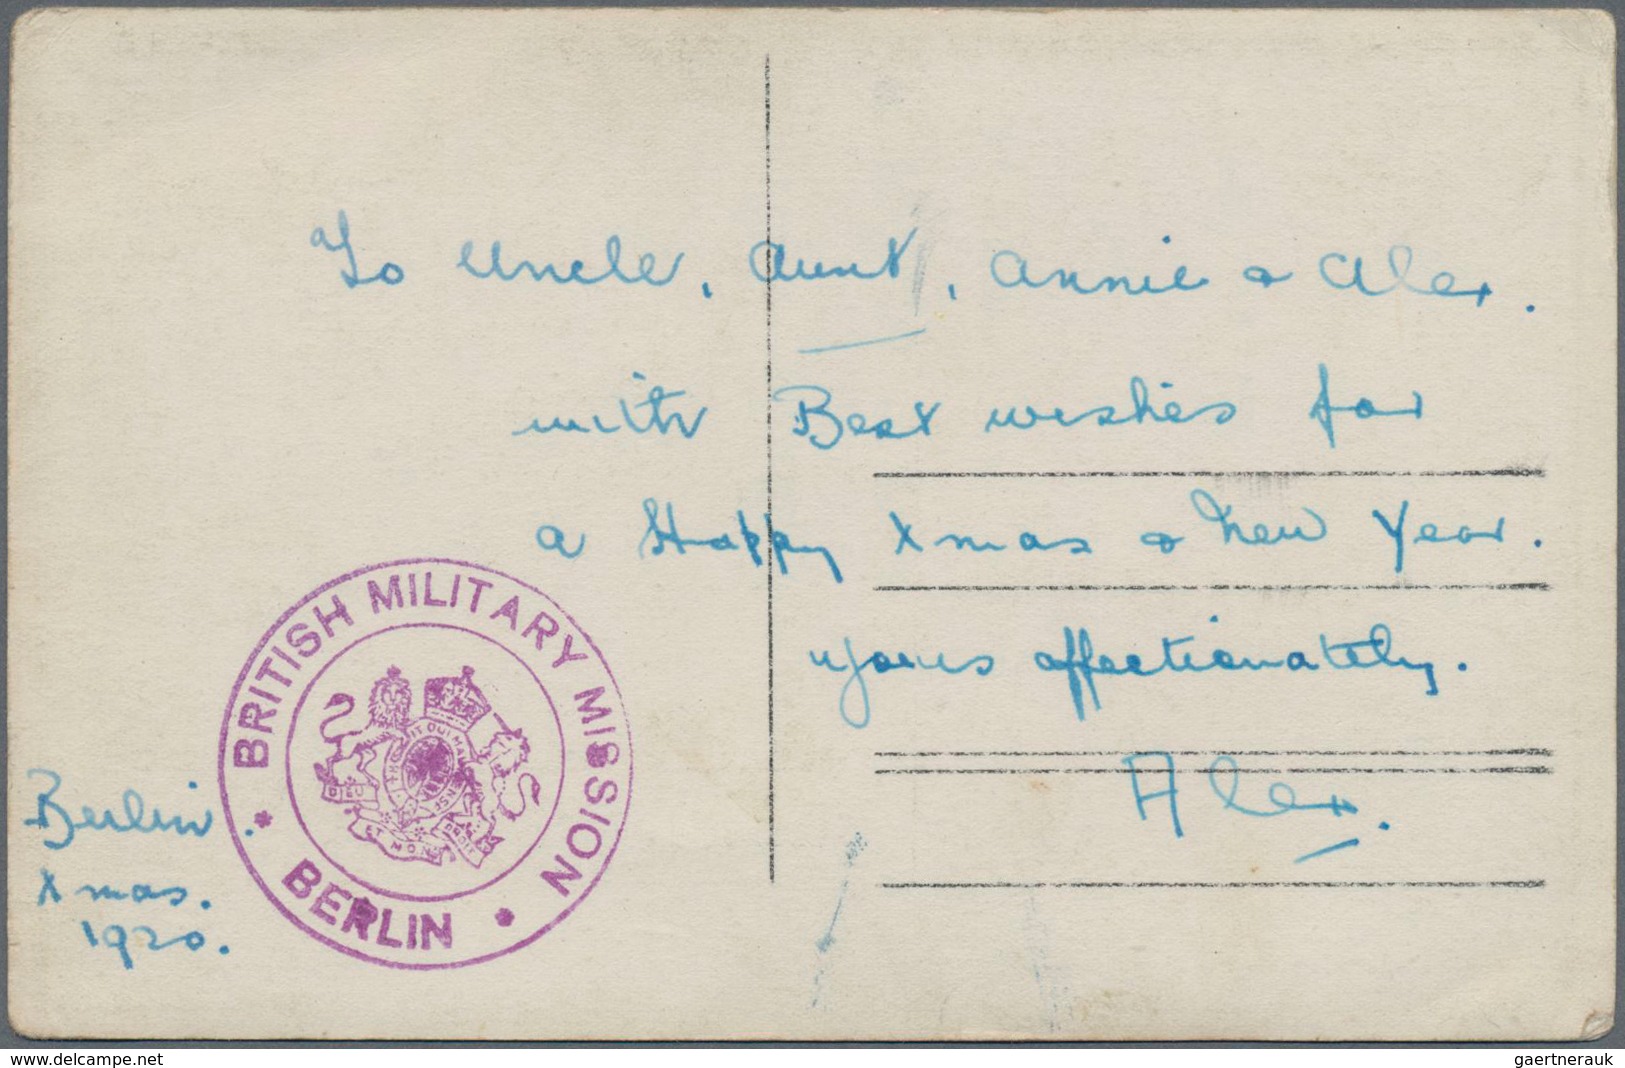 To Uncle, Aunt, Annie & Alex.
with Best wishes for
a Happy Xmas & New Year.
yours affectionately.
Alex.
Berlin.
Xmas.
1920.
* BRITISH MILITARY MISSION *
BERLIN
DIEU
ET MON
DROIT
www.delcampe.net
gaertnerauk